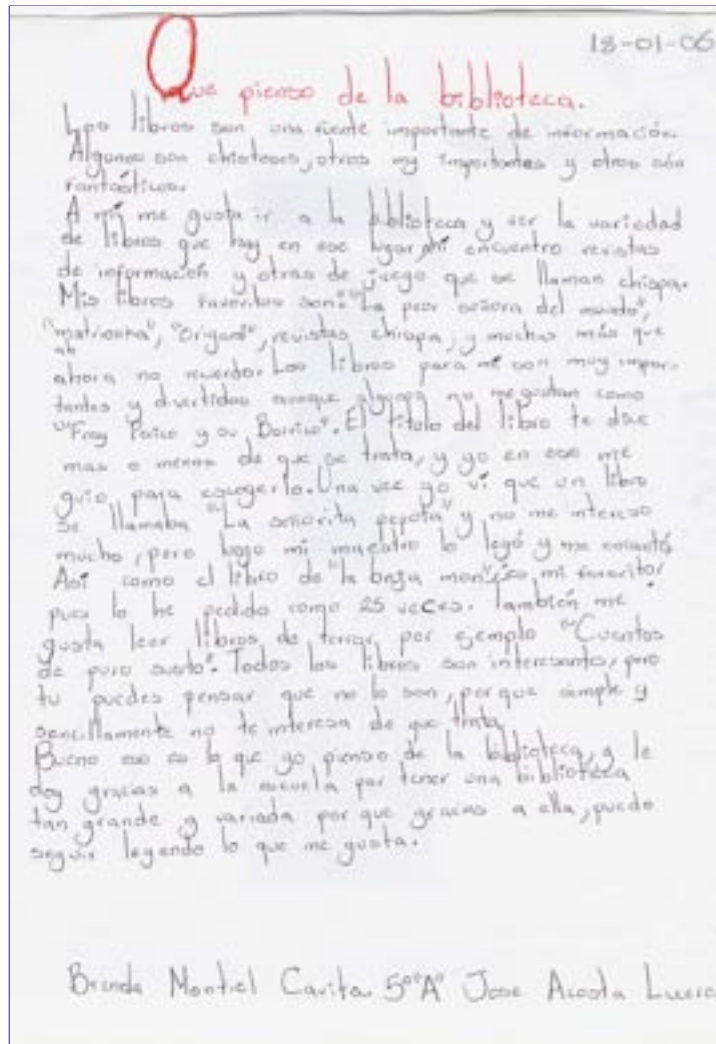 18-01-06
Que pienso de la biblioteca.
Los libros son una fuente importante de información.
Algunos son chistosos, otros my importantes y otros són
fantásticos.
A mí me gusta ir a la biblioteca y ver la variedad
de libros que hay en ese lugar, ahí encuentro revistas
de información y otras de juego que se llaman chispa.
Mis libros favoritos son: "La peor señora del mundo",
"matrioska", "Origami", revistas chispa, y muchas más que
ah
ahora no recuerdo. Los libros para mí son muy impor-
tantes y divertidos aunque algunos no me gustan como
"Fray Perico y su Borrico". El título del libro te dice
mas o menos de que se trata, y yo en eso me
guío para escogerlo. Una vez yo ví que un libro
se llamaba "La señorita pepota" y no me intereso
mucho, pero luego mi maestro lo leyó y me encantó
Así como el libro de "la bruja mon", mi favorito,
pues lo he pedido como 25 veces. También me
gusta leer libros de terror, por ejemplo "Cuentos
de puro susto". Todos los libros son interesantes, pero
tu puedes pensar que no lo son, porque simple y
sencillamente no te interesa de que trata.
Bueno eso es lo que yo pienso de la biblioteca, y le
doy gracias a la escuela por tener una biblioteca
tan grande y variada por que gracias a ella, puedo
seguir leyendo lo que me gusta.
Brenda Montiel 5º"A" Jose Acosta Lucero